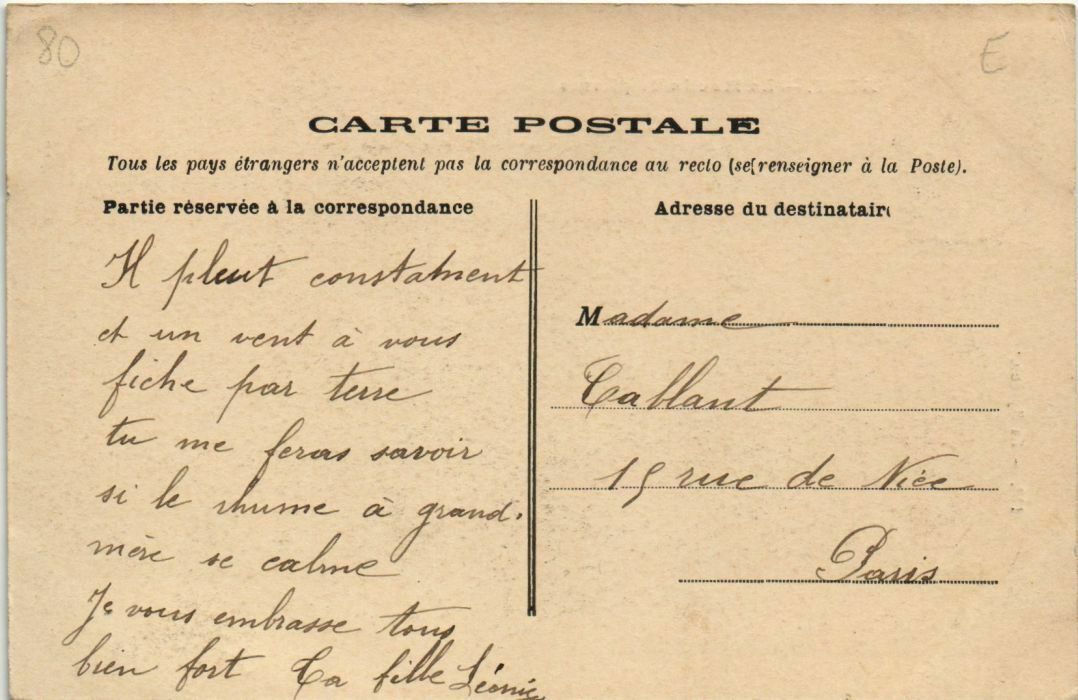 80
E
CARTE POSTALE
Tous les pays étrangers n'acceptent pas la correspondance au recto (se renseigner à la Poste).
Partie réservée à la correspondance
Il pleut constament
et un vent à vous
fiche par terre
tu me feras savoir
si le rhume à grand-
mère se calme
Je vous embrasse tous
bien fort Ta fille Léonie
Adresse du destinataire
Madame
Tablant
15 rue de Nice
Paris